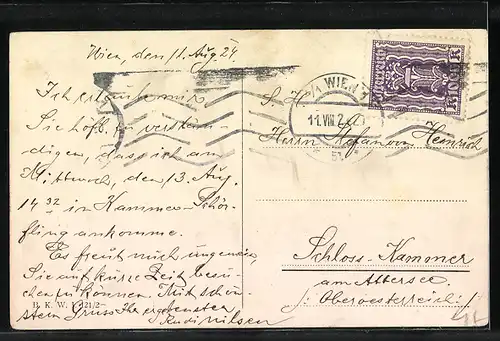 Wien, den 11. Aug 24.
Ich erlaube mir
Sie höfl. zu verstän-
digen, dass ich am
Mittwoch, den 13. Aug.
14 32 in Kammer-Schör-
fling ankomme.
Es freut mich ungemein
Sie auf kurze Zeit besu-
chen zu können. Mit schön-
stem Gruss Ihr ergebenster
Rudi
B. K. W. I. 321/2
WIEN
11. VIII. 2
S. H.
Herrn Stefan Heinrich
Schloss-Kammer
am Attersee.
/: Oberoesterreich :/